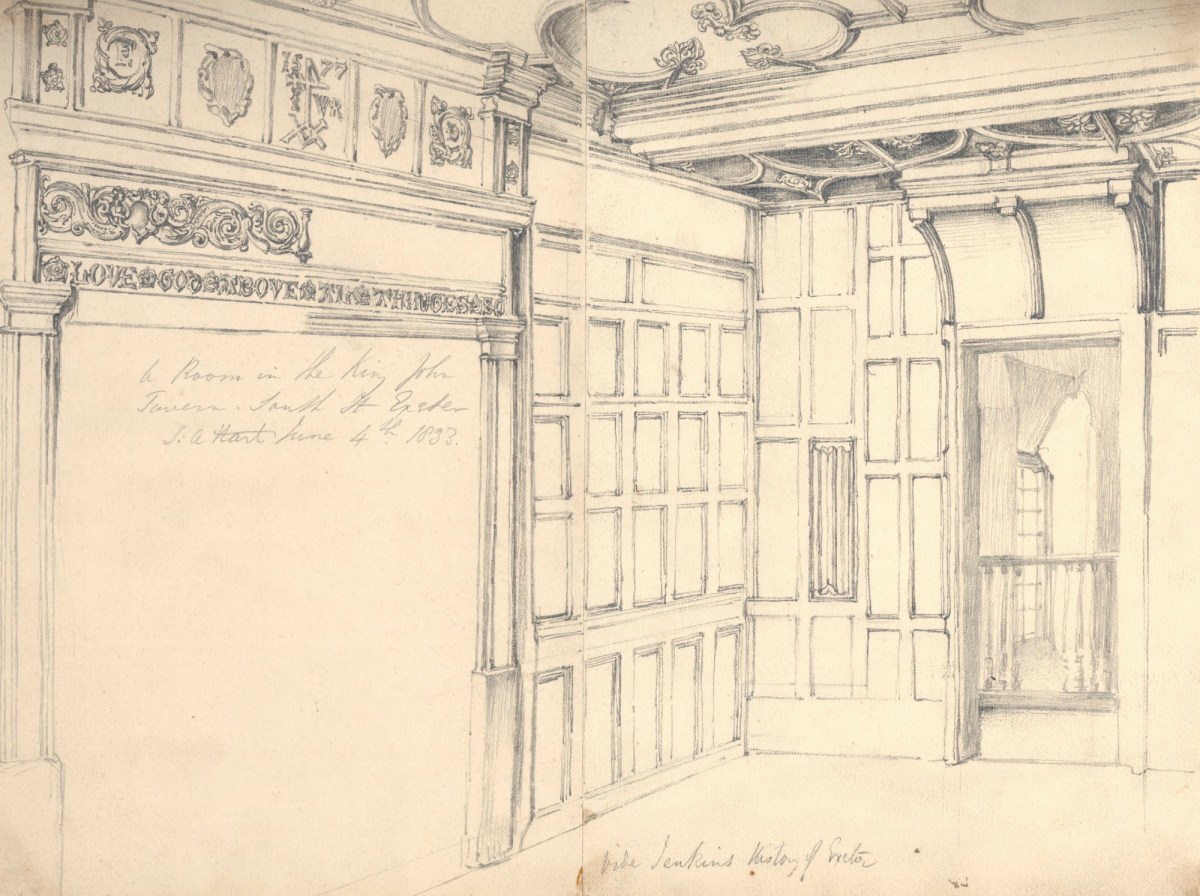 15 77
VR
LOVE GOD ABOVE AL THINGES
A Room in the King John
Tavern. South St Exeter
S: A Hart June 4th 1833.
Vide Jenkins History of Exeter